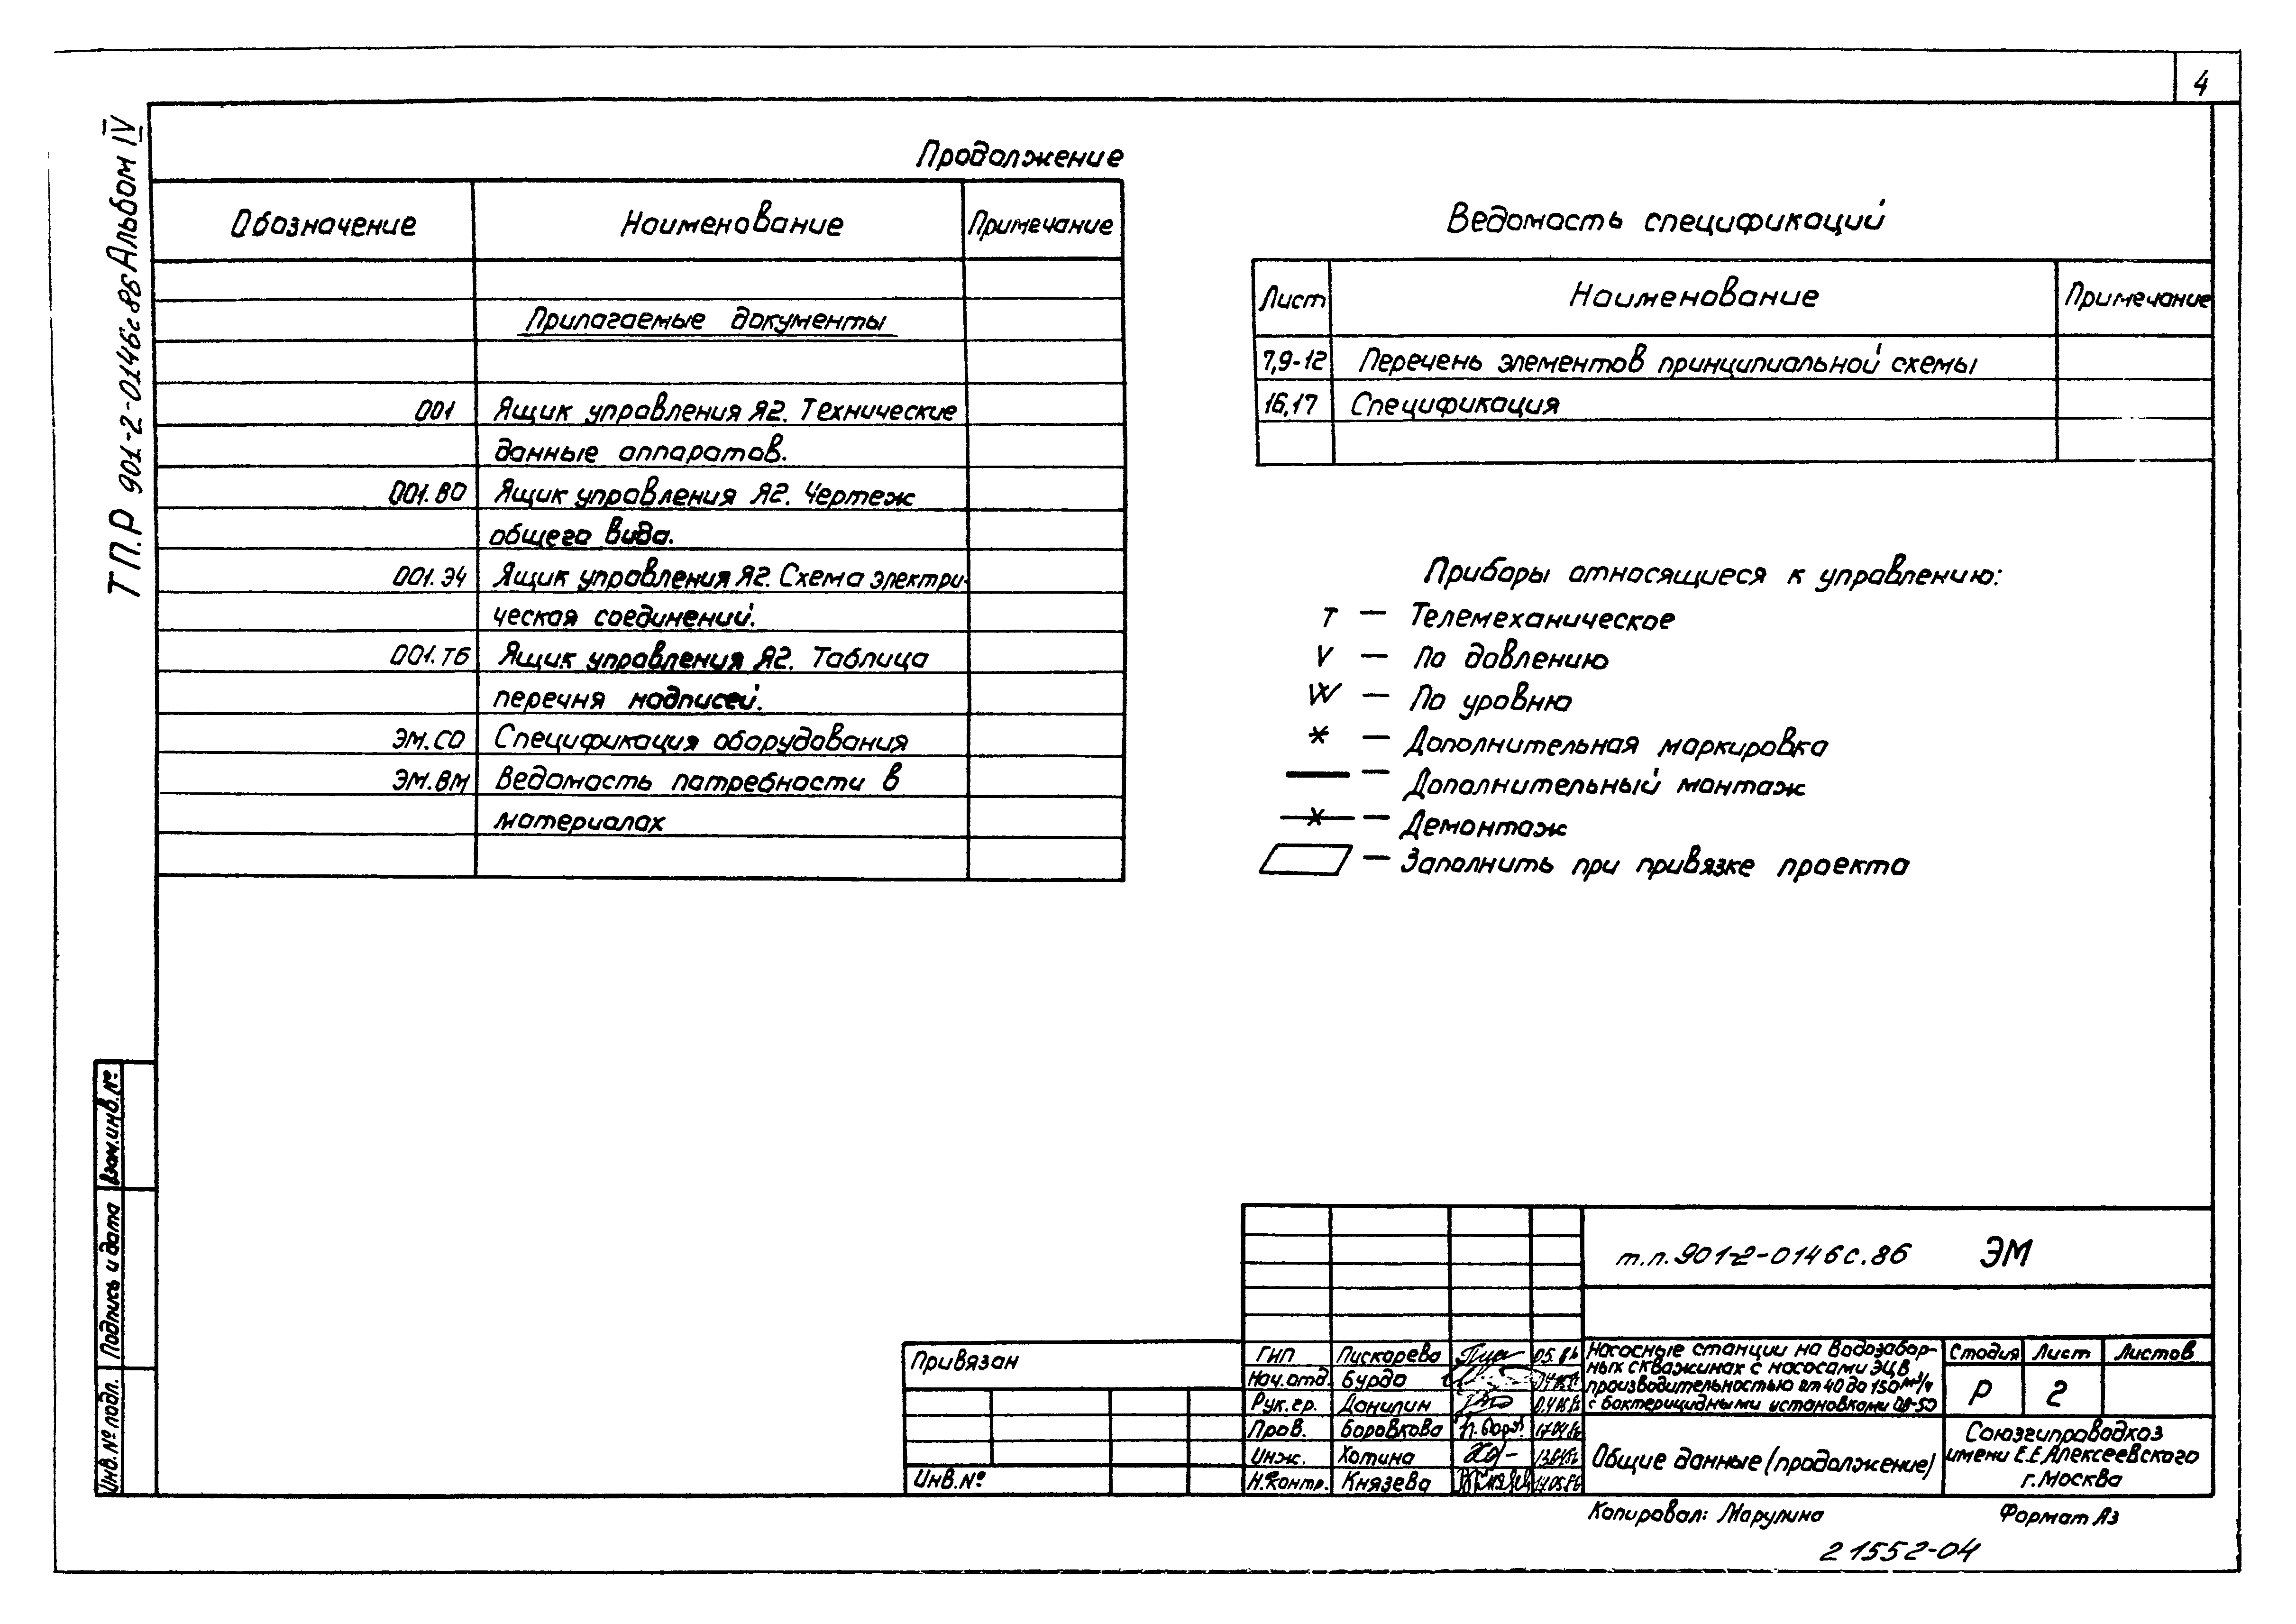 4
ТП.Р 901-2-0146с86 Альбом IV
Продолжение
Обозначение Наименование Примечание
Прилагаемые документы
001 Ящик управления Я2. Технические
данные аппаратов.
001.ВО Ящик управления Я2. Чертеж
общего вида.
001.Э4 Ящик управления Я2. Схема электри-
ческая соединений.
001.ТБ Ящик управления Я2. Таблица
перечня надписей.
ЭМ.СО Спецификация оборудования
ЭМ.ВМ Ведомость потребности в
материалах
Ведомость спецификаций
Лист Наименование Примечание
7,9-12 Перечень элементов принципиальной схемы
16,17 Спецификация
Приборы относящиеся к управлению:
Т — Телемеханическое
V — По давлению
W — По уровню
* — Дополнительная маркировка
— Дополнительный монтаж
— Демонтаж
— Заполнить при привязке проекта
Взам.инв.№
Подпись и дата
Инв.№ подл.
Привязан
Инв.№
т.п.901-2-0146с.86 ЭМ
ГИП Пискарева 05.86
Нач.отд. Бурда
Рук.гр. Данилин
Пров. Боровкова
Инж. Хотина
Н.Контр. Князева
Насосные станции на водозабор-
ных скважинах с насосами ЭЦВ
производительностью от 40 до 150 м³/ч
с бактерицидными установками ОВ-50
Стадия Лист Листов
Р 2
Общие данные (продолжение)
Союзгипроводхоз
имени Е.Е.Алексеевского
г.Москва
Копировал: Марулина Формат А3
21552-04